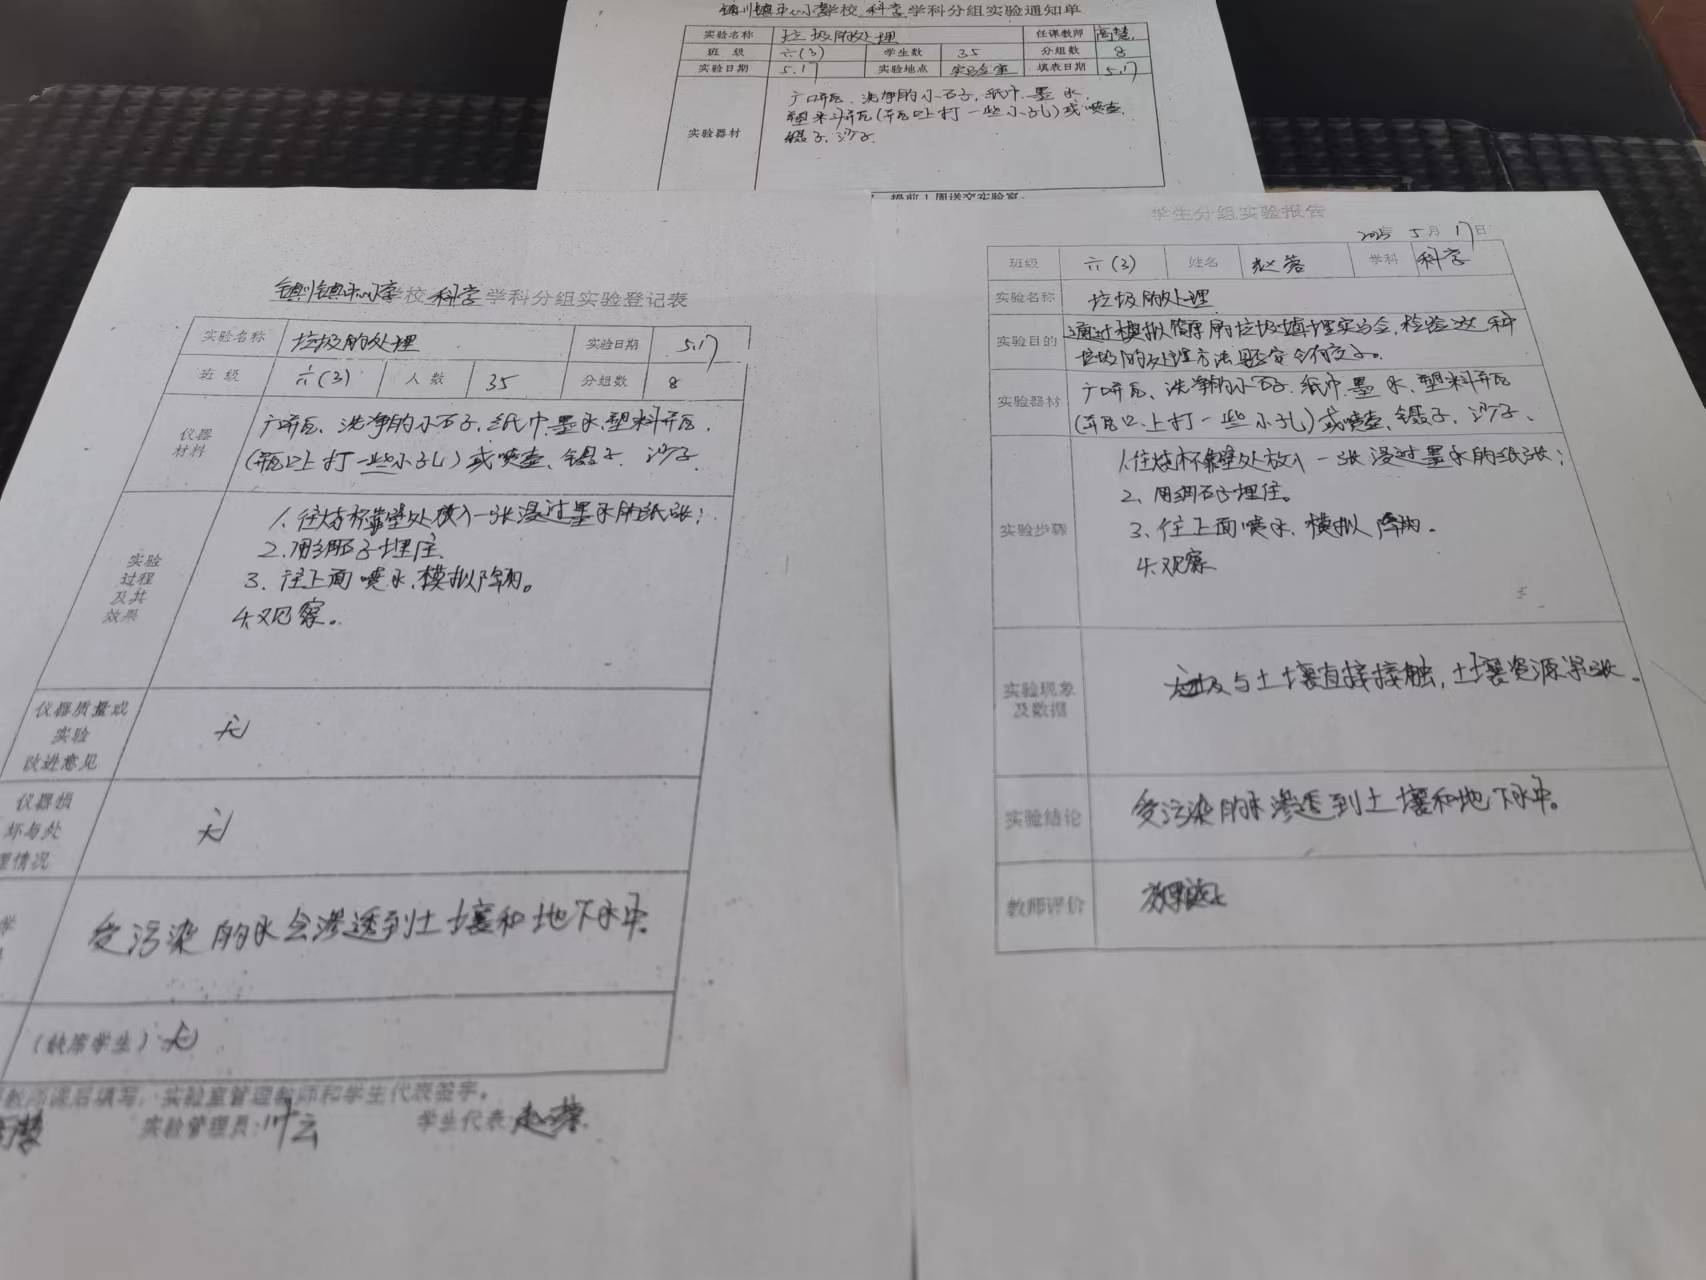 镇川镇中心小学校 科学学科分组实验通知单
实验名称 垃圾的处理 任课教师 高慧
班级 六(3) 学生数 35 分组数 8
实验日期 5.17 实验地点 实验室 填表日期 5.17
实验器材
广口瓶、洗净的小石子,纸巾.墨水.
塑料瓶(瓶口上打一些小孔)或喷壶.
镊子.沙子.
提前1周送交实验室.
镇川镇中心小学校 科学学科分组实验登记表
实验名称 垃圾的处理 实验日期 5.17
班级 六(3) 人数 35 分组数 8
仪器材料
广口瓶、洗净的小石子.纸巾.墨水.塑料瓶.
(瓶口上打一些小孔)或喷壶、镊子.沙子.
实验过程及其效果
1.往烧杯靠壁处放入一张浸过墨水的纸张;
2.用细石子埋住.
3.往上面喷水,模拟降雨。
4.观察。
仪器质量或实验改进意见 无
仪器损坏与处理情况 无
受污染的水会渗透到土壤和地下水中.
(缺席学生):无
教师课后填写,实验室管理教师和学生代表签字。
实验管理员:叶云 学生代表:赵蓉
学生分组实验报告
2025年5月17日
班级 六(3) 姓名 赵蓉 学科 科学
实验名称 垃圾的处理
实验目的
通过模拟简单的垃圾填埋实验,检验这种
垃圾的处理方法是否安全有效。
实验器材
广口瓶、洗净的小石子.纸巾.墨水.塑料瓶
(瓶口上打一些小孔)或喷壶、镊子、沙子、
实验步骤
1.往烧杯靠壁处放入一张浸过墨水的纸张;
2、用细石子埋住。
3.往上面喷水.模拟降雨.
4.观察
实验现象及数据
垃圾与土壤直接接触,土壤资源紧张.
实验结论 受污染的水渗透到土壤和地下水中。
教师评价